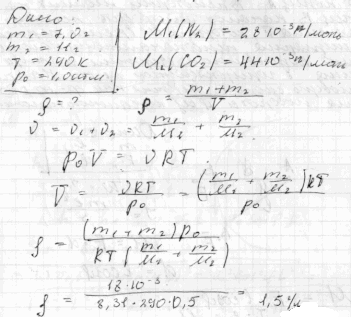 Дано:
m₁ = 7,0 г
m₂ = 11 г
T = 290 К
p₀ = 1,0 атм
M₁(N₂) = 28·10⁻³ кг/моль
M₂(CO₂) = 44·10⁻³ кг/моль
ρ = ? ρ = (m₁+m₂)/V
ν = ν₁ + ν₂ = m₁/M₁ + m₂/M₂
p₀V = νRT.
V = νRT/p₀ = (m₁/M₁ + m₂/M₂)RT/p₀
ρ = (m₁ + m₂)p₀/RT(m₁/M₁ + m₂/M₂)
ρ = 18·10⁻³/8,31·290·0,5 = 1,5 г/л